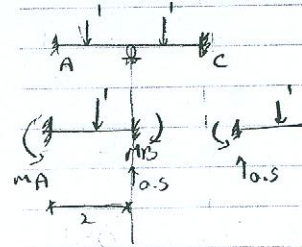 1 1
A C
1 1
MA MB
0.5 0.5
2